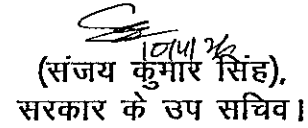 (संजय कुमार सिंह),
सरकार के उप सचिव।